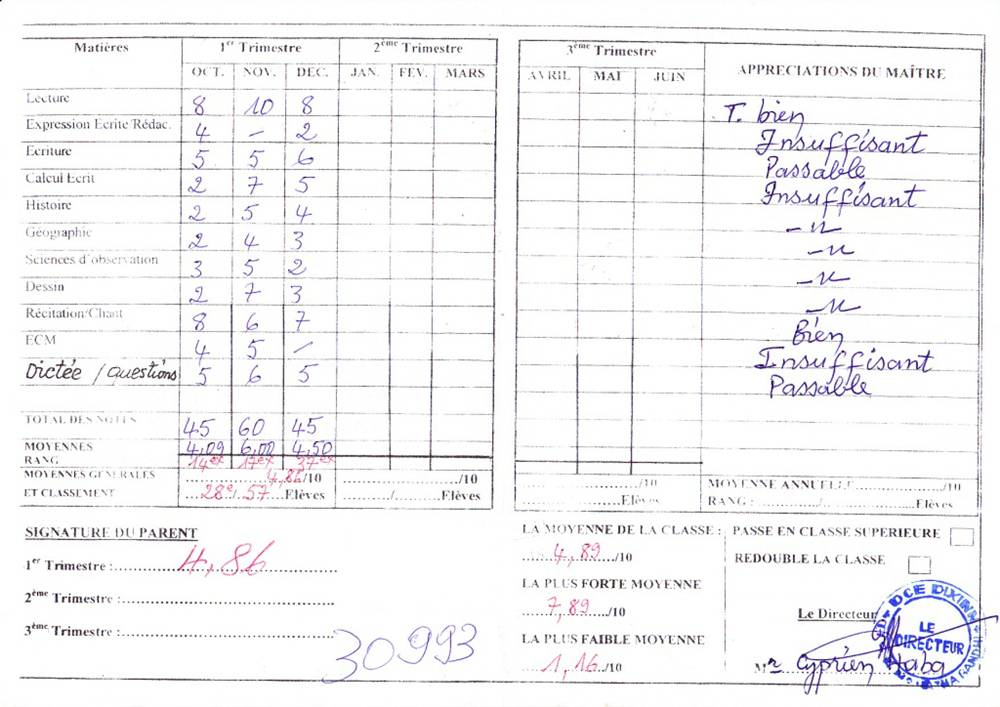 Matières 1er Trimestre 2ème Trimestre 3ème Trimestre APPRECIATIONS DU MAÎTRE
OCT. NOV. DEC. JAN. FEV. MARS AVRIL MAI JUIN
Lecture 8 10 8 T. bien
Expression Ecrite/Rédac. 4 - 2 Insuffisant
Ecriture 5 5 6 Passable
Calcul Ecrit 2 7 5 Insuffisant
Histoire 2 5 4 -"-
Géographie 2 4 3 -"-
Sciences d'observation 3 5 2 -"-
Dessin 2 7 3 -"-
Récitation/Chant 8 6 7 Bien
ECM 4 5 - Insuffisant
Dictée / questions 5 6 5 Passable
TOTAL DES NOTES 45 60 45
MOYENNES 4,09 6,00 4,50
RANG 14ex 17ex 37ex
MOYENNES GENERALES 4,86/10 ....../10 ....../10 MOYENNE ANNUELLE ....../10
ET CLASSEMENT ...28e/.57...Elèves ....../......Elèves ......Elèves RANG : ....../......Elèves
SIGNATURE DU PARENT
1er Trimestre : 4,86
2ème Trimestre :
3ème Trimestre :
30993
LA MOYENNE DE LA CLASSE :
4,89/10
LA PLUS FORTE MOYENNE
7,89/10
LA PLUS FAIBLE MOYENNE
1,16/10
PASSE EN CLASSE SUPERIEURE
REDOUBLE LA CLASSE
Le Directeur
DCE DIXINN
LE
DIRECTEUR
Mr Cyprien Haba